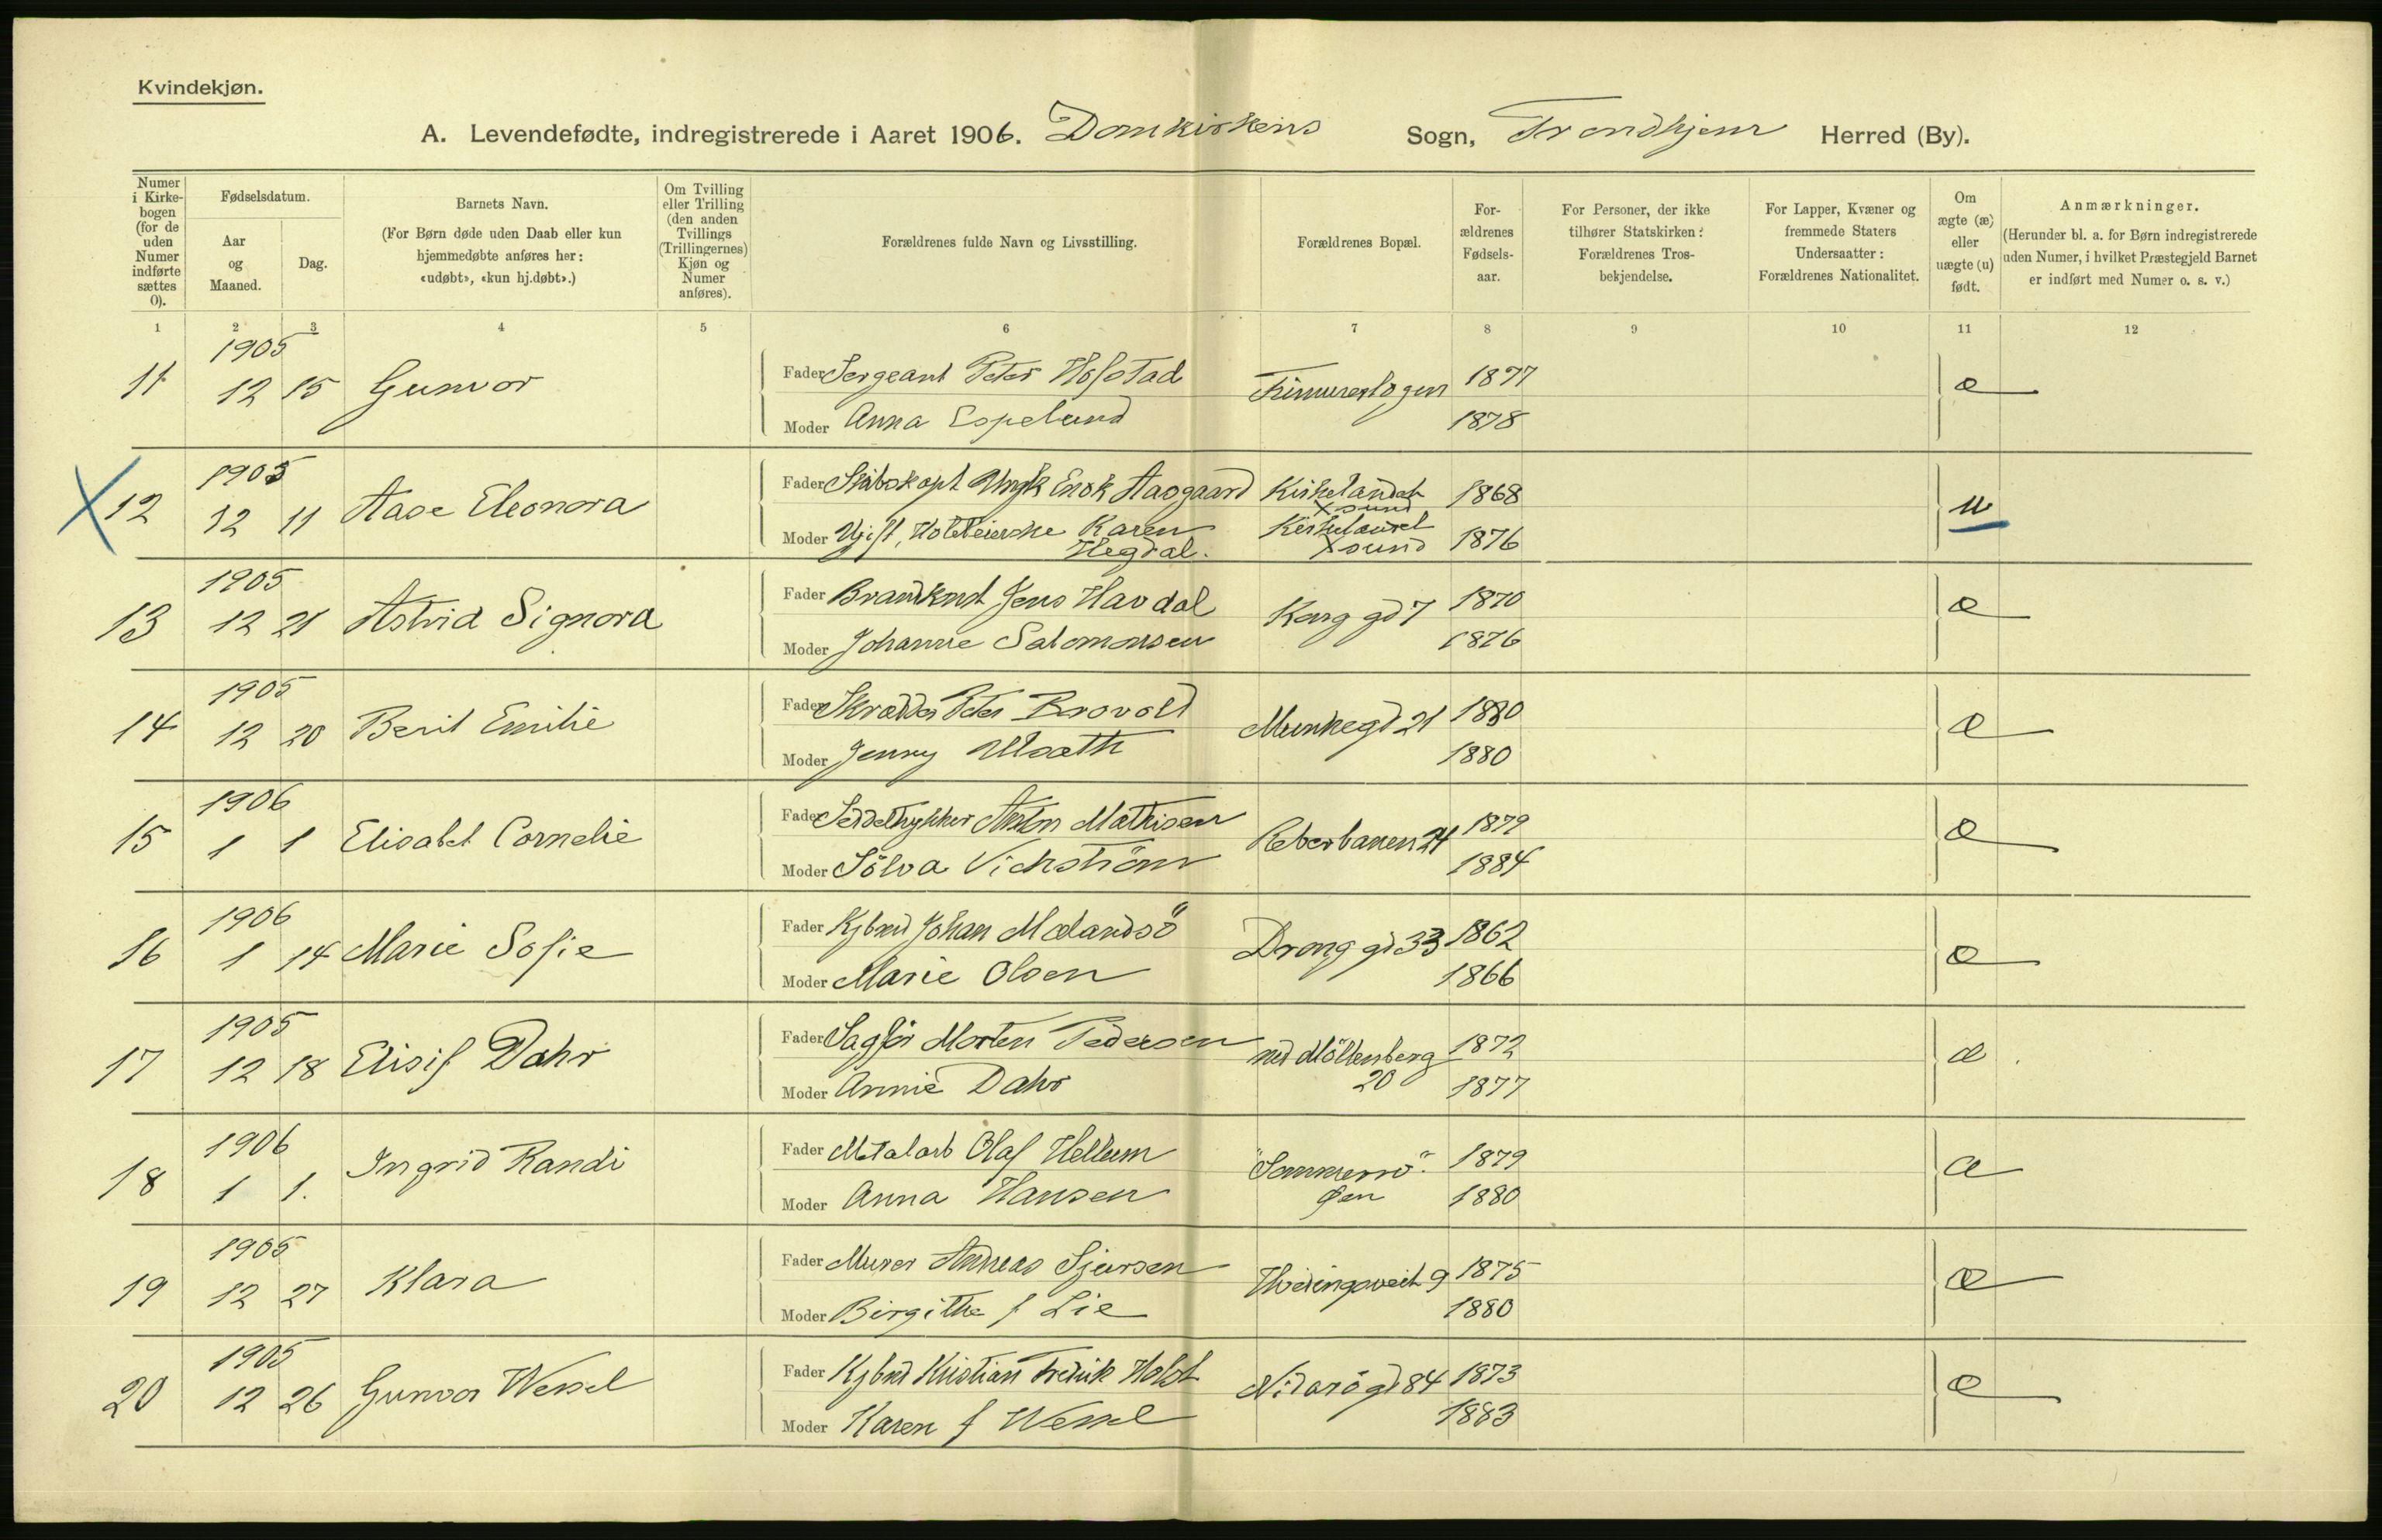 Kvindekjøn.
A. Levendefødte, indregistrerede i Aaret 1906. Domkirkens Sogn, Trondhjem Herred (By).
Numer i Kirkebogen (for de uden Numer indførte sættes 0).
Fødselsdatum.
Aar og Maaned.
Dag.
Barnets Navn.
(For Børn døde uden Daab eller kun hjemmedøbte anføres her: «udøbt», «kun hj.døbt».)
Om Tvilling eller Trilling (den anden Tvillings (Trillingernes) Kjøn og Numer anføres).
Forældrenes fulde Navn og Livsstilling.
Forældrenes Bopæl.
Forældrenes Fødselsaar.
For Personer, der ikke tilhører Statskirken: Forældrenes Trosbekjendelse.
For Lapper, Kvæner og fremmede Staters Undersaatter: Forældrenes Nationalitet.
Om ægte (æ) eller uægte (u) født.
Anmærkninger.
(Herunder bl. a. for Børn indregistrerede uden Numer, i hvilket Præstegjeld Barnet er indført med Numer o. s. v.)
1 2 3 4 5 6 7 8 9 10 11 12
1905
11 12 15 Gunvor
Fader Sergeant Peter Hofstad 1877 æ
Moder Anna Espelund 1878
1905
X 12 12 11 Aase Eleonora
Fader Skibskapt Enok Aasgaard Kirkelandet Xsund 1868 u
Moder Ugift, Karen Hegdal. Kirkelandet Xsund 1876
1905
13 12 21 Astrid Signora
Fader Brandknst Jens Havdal Kong gd 7 1870 æ
Moder Johanne Salomonsen 1876
1905
14 12 20 Berit Emilie
Fader Skrædder Peter Brovold Munkegd 21 1880 æ
Moder Jenny 1880
1906
15 1 1 Elisabet Cornelie
Fader Anton Mathisen Reberbanen 21 1879 æ
Moder Sölva Vickström 1884
1906
16 1 14 Marie Sofie
Fader Kjbmd Johan Mælandsö Drong gd 33 1862 æ
Moder Marie Olsen 1866
1905
17 12 18 Elisif Dahr
Fader Sagför Morten Pedersen ned Möllenberg 20 1872 æ
Moder Annie Dahr 1877
1906
18 1 1. Ingrid Randi
Fader Metalarb Olaf Hellem "Sommerro". Øen 1879 æ
Moder Anna Hansen 1880
1905
19 12 27 Klara
Fader Murer Andreas Sjursen Hvedingsveit 9 1875 æ
Moder Birgithe f Lie 1880
1905
20 12 26 Gunvor Wessel
Fader Kjbmd Kristian Fredrik Holst Nidarö gd 84 1873 æ
Moder Karen f Wessel 1883